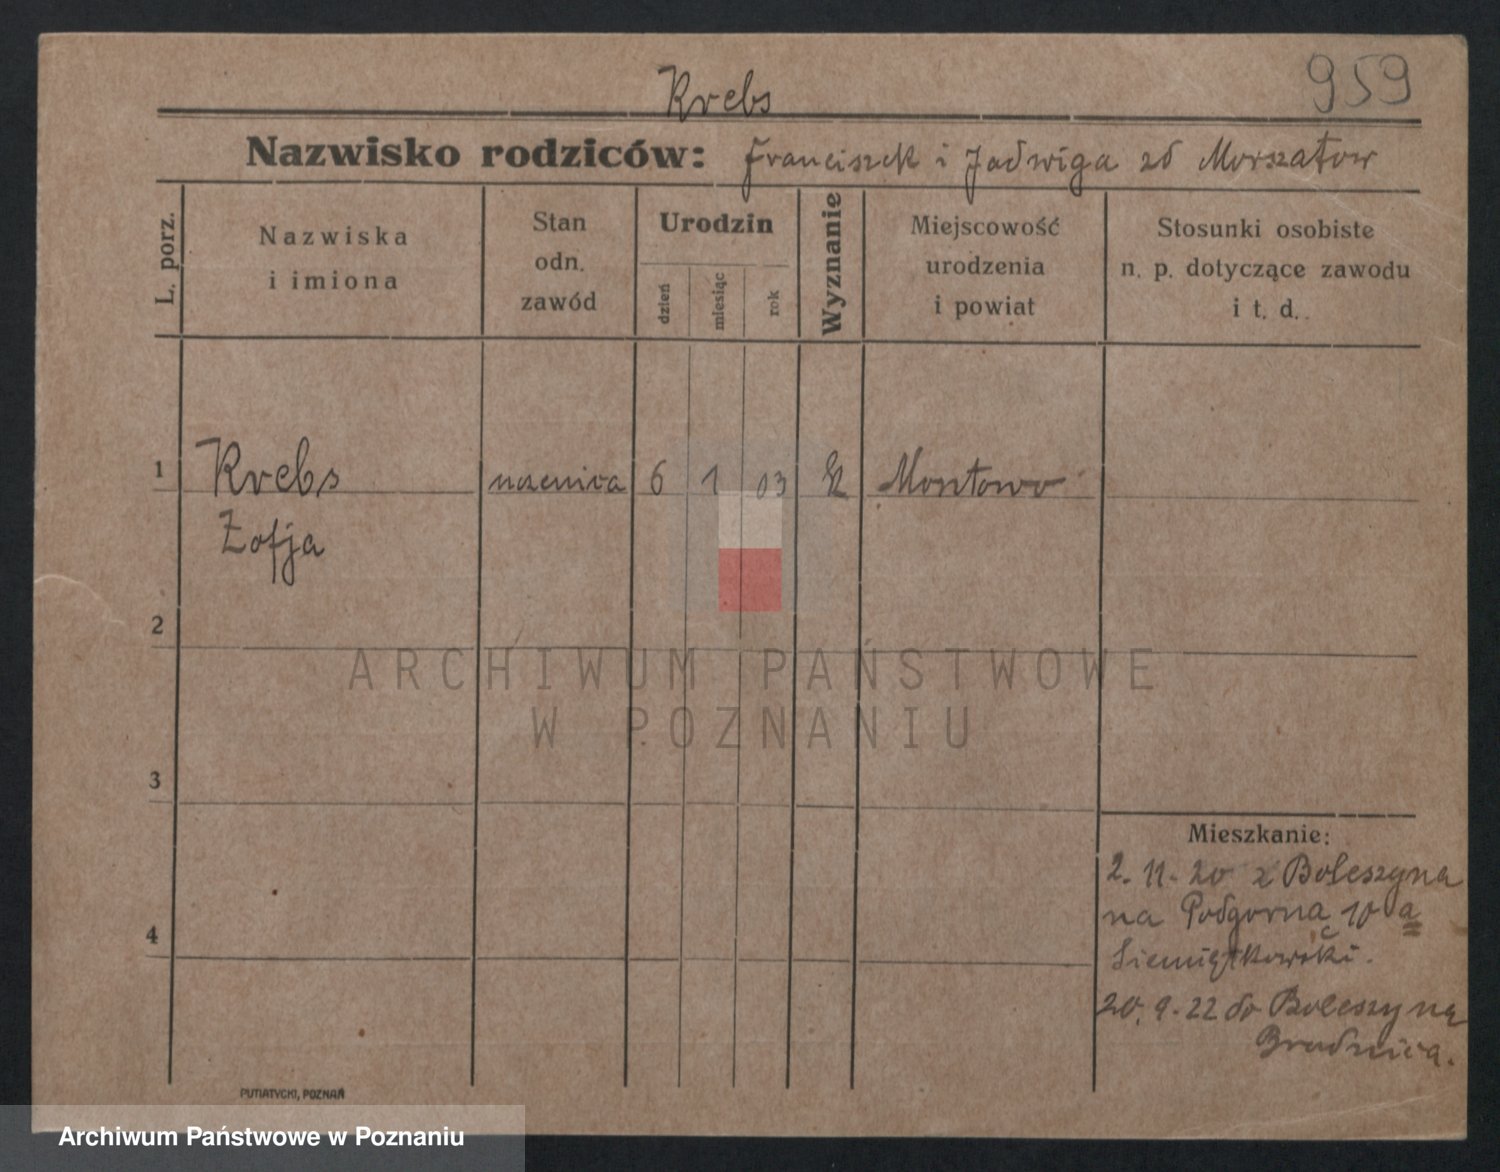 959
Krebs
Nazwisko rodziców: Franciszek i Jadwiga zd Morszałow
L. porz.
Nazwiska
i imiona
Stan
odn.
zawód
Urodzin
dzień
miesiąc
rok
Wyznanie
Miejscowość
urodzenia
i powiat
Stosunki osobiste
n. p. dotyczące zawodu
i t. d.
1 Krebs uczenica 6 1 03 k Montowo
Zofja
2
3
4
ARCHIWUM PAŃSTWOWE
W POZNANIU
Mieszkanie:
2. 11. 20 z Boleszyna
na Podgorna 10 a
Siemiątkowski.
20. 9. 22 do Boleszyna
Brodnica.
PUTIATYCKI, POZNAŃ
Archiwum Państwowe w Poznaniu